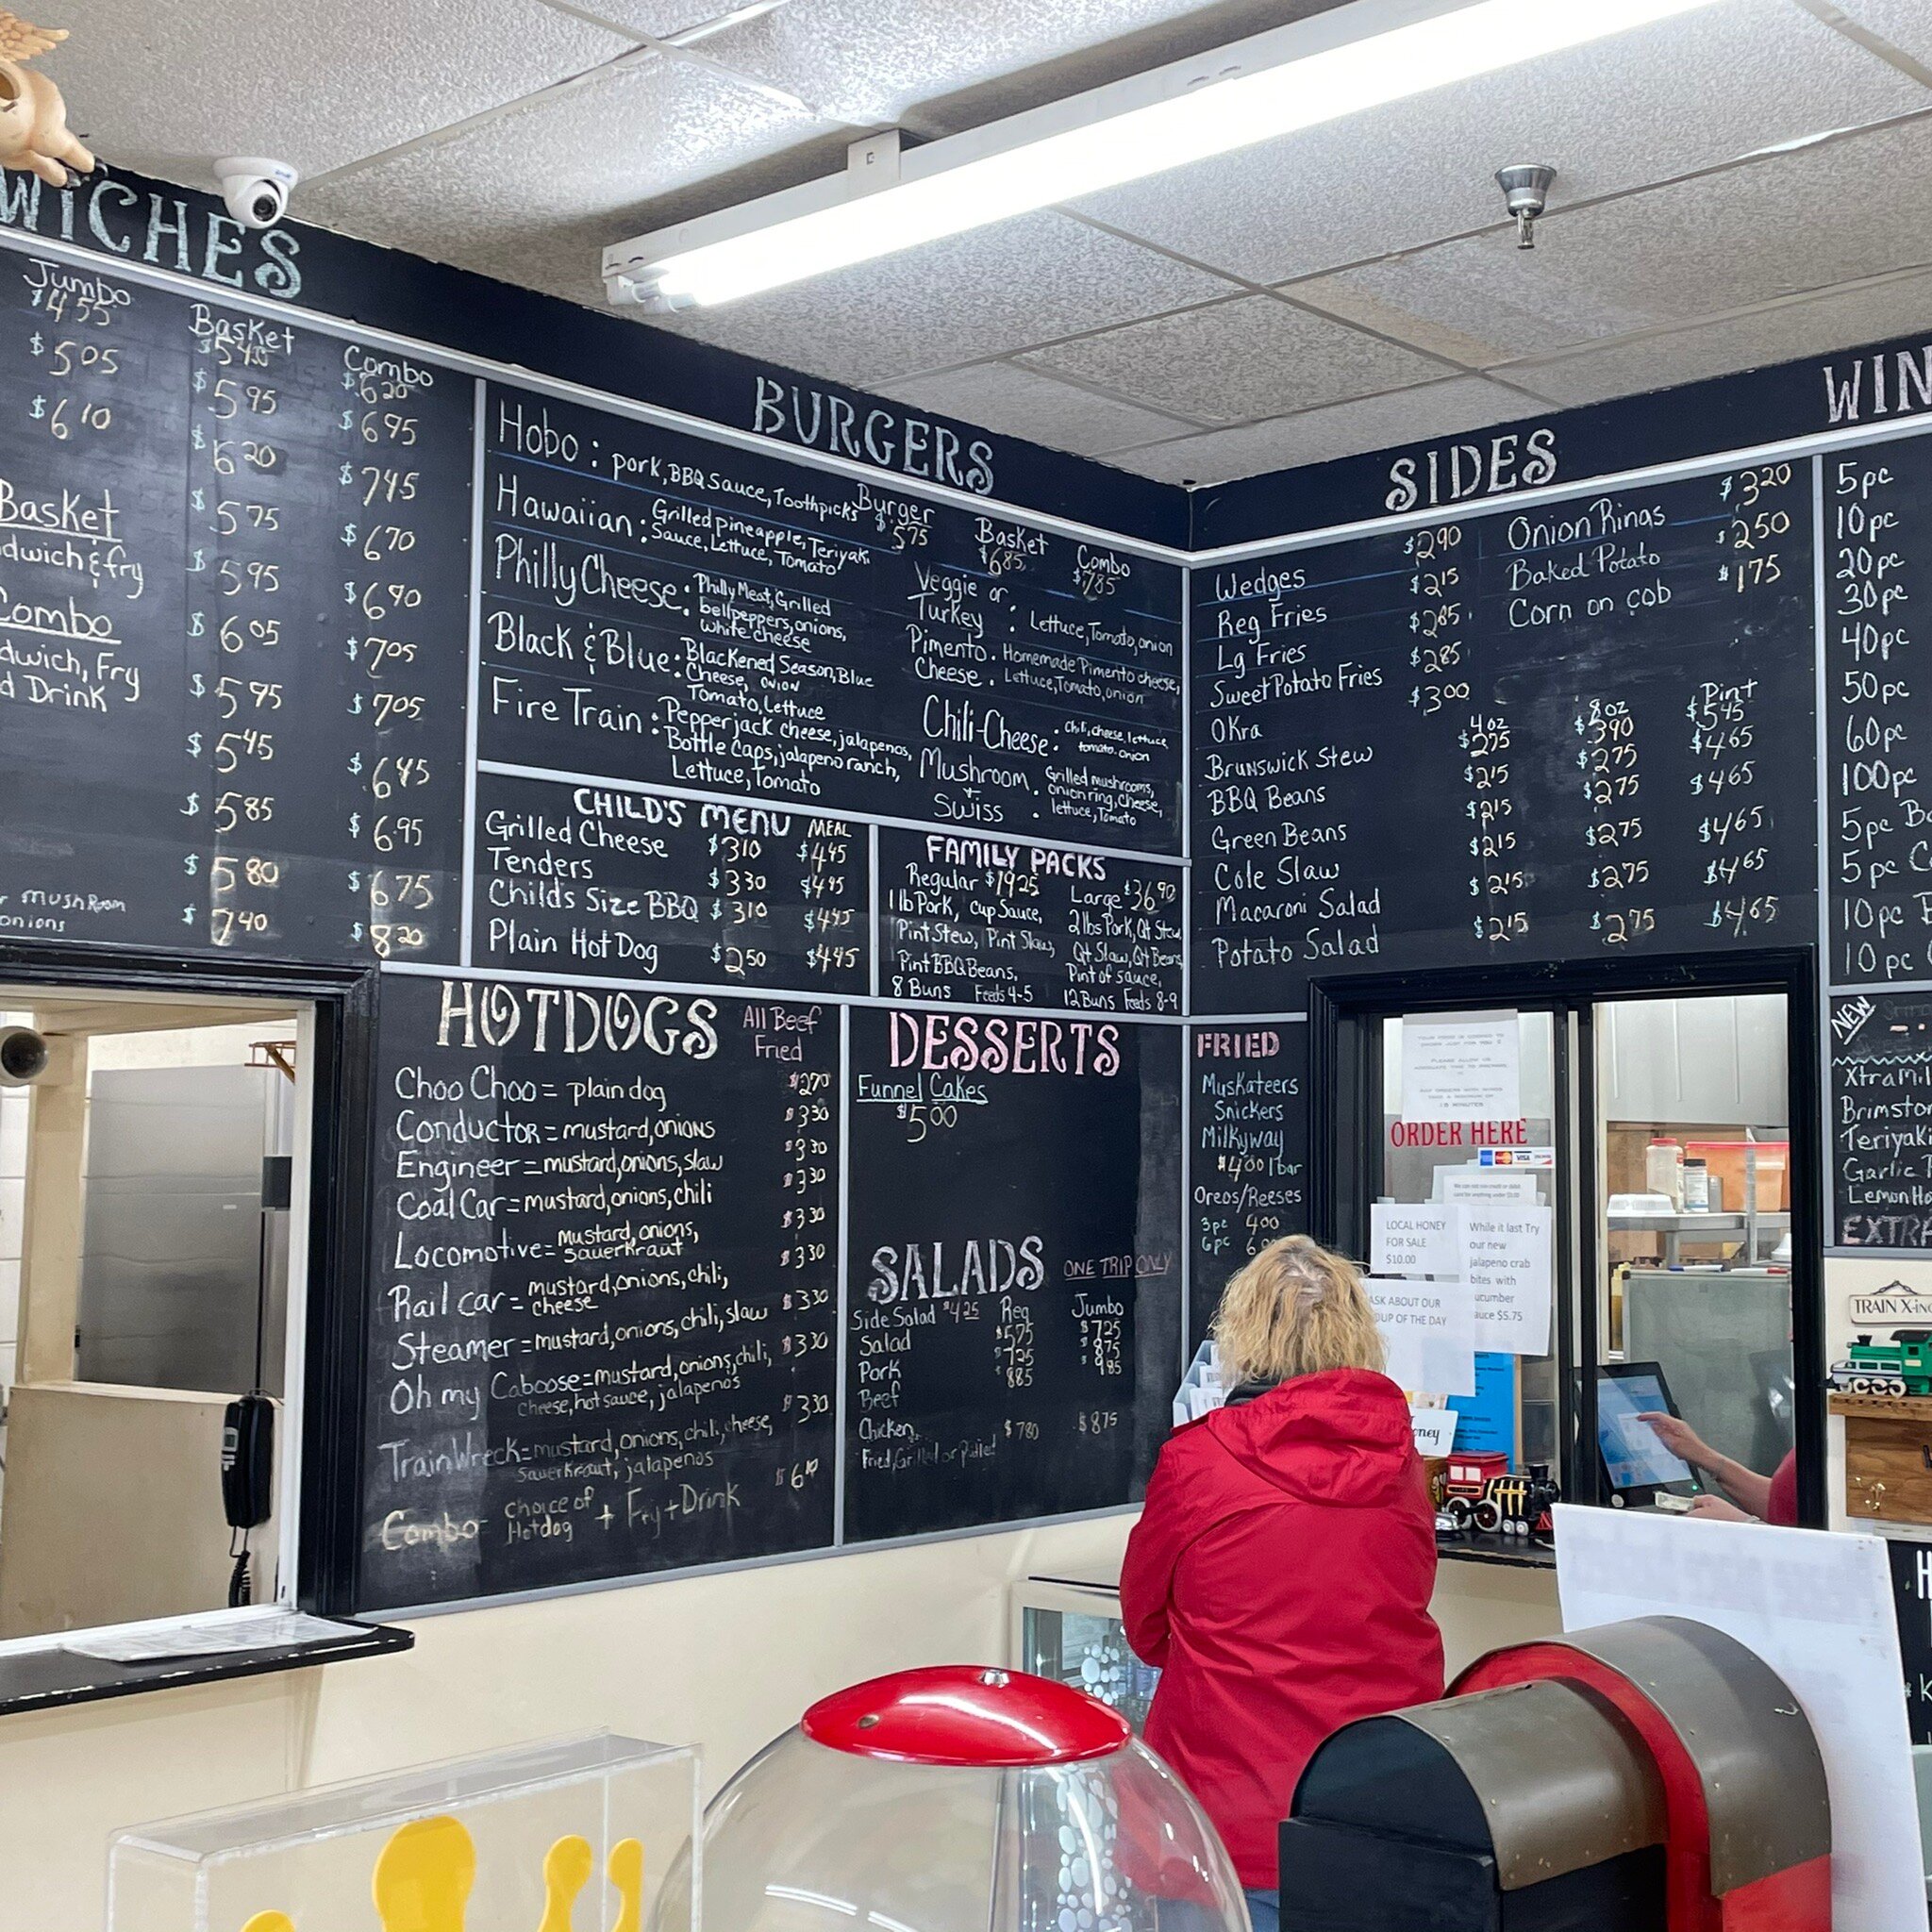 WICHES
Jumbo
$4.55
$5.05
$6.10
Basket
$5.40
$5.95
$6.20
$5.75
$5.95
$6.05
$5.95
$5.45
$5.85
$5.80
$7.40
Combo
$6.20
$6.95
$7.45
$6.70
$6.90
$7.05
$7.05
$6.45
$6.95
$6.75
$8.20
Basket
dwich & fry
Combo
dwich, Fry
d Drink
r mushRoom
onions
BURGERS
Hobo: pork, BBQ Sauce, Toothpicks
Hawaiian: Grilled pineapple, Teriyaki
Sauce, Lettuce, Tomato
Philly Cheese: Philly Meat, Grilled
bellpeppers, onions,
white cheese
Black & Blue: Blackened Season, Blue
Cheese, onion
Tomato, Lettuce
Fire Train: Pepperjack cheese, jalapenos,
Bottle Caps, jalapeno ranch,
Lettuce, Tomato
Burger
$5.75
Basket
$6.85
Combo
$7.85
Veggie or
Turkey : Lettuce, Tomato, onion
Pimento Cheese : Homemade Pimento cheese,
Lettuce, Tomato, onion
Chili-Cheese: Chili, cheese, lettuce
tomato, onion
Mushroom + Swiss : Grilled mushrooms,
onion ring, cheese,
lettuce, Tomato
CHILD'S MENU MEAL
Grilled Cheese $3.10 $4.45
Tenders $3.30 $4.45
Child's Size BBQ $3.10 $4.45
Plain Hot Dog $2.50 $4.45
FAMILY PACKS
Regular $19.25
1 lb Pork, cup Sauce,
Pint Stew, Pint Slaw,
Pint BBQ Beans,
8 Buns Feeds 4-5
Large $36.90
2 lbs Pork, Qt Stew,
Qt Slaw, Qt Beans,
Pint of sauce,
12 Buns Feeds 8-9
SIDES
Wedges $2.90
Reg Fries $2.15
Lg Fries $2.85
Sweet Potato Fries $2.85
Okra $3.00
Onion Rings $3.20
Baked Potato $2.50
Corn on cob $1.75
4 oz 8 oz Pint
Brunswick Stew $2.75 $3.90 $5.45
BBQ Beans $2.15 $2.75 $4.65
Green Beans $2.15 $2.75 $4.65
Cole Slaw $2.15 $2.75 $4.65
Macaroni Salad $2.15 $2.75 $4.65
Potato Salad $2.15 $2.75 $4.65
WIN
5pc
10pc
20pc
30pc
40pc
50pc
60pc
100pc
5pc Bo
5pc C
10pc
10pc
HOTDOGS All Beef
Fried
Choo Choo = plain dog $2.70
Conductor = mustard, onions $3.30
Engineer = mustard, onions, slaw $3.30
Coal Car = mustard, onions, chili $3.30
Locomotive = mustard, onions,
sauerkraut $3.30
Rail car = mustard, onions, chili,
cheese $3.30
Steamer = mustard, onions, chili, slaw $3.30
Oh my Caboose = mustard, onions, chili,
cheese, hot sauce, jalapenos $3.30
Train Wreck = mustard, onions, chili, cheese,
sauerkraut, jalapenos $3.30
Combo = choice of
Hotdog + Fry + Drink $6.10
DESSERTS
Funnel Cakes
$5.00
SALADS ONE TRIP ONLY
Side Salad $4.25 Reg Jumbo
Salad $5.75 $7.25
Pork $7.25 $8.75
Beef $8.85 $9.85
Chicken $7.80 $8.75
Fried, Grilled or Pulled
FRIED
Muskateers
Snickers
Milkyway
$4.00 1 bar
Oreos/Reeses
3pc 4.00
6pc
ORDER HERE
VISA
LOCAL HONEY
FOR SALE
$10.00
While it last Try
our new
jalapeno crab
bites with
ucumber
auce $5.75
ASK ABOUT OUR
OUP OF THE DAY
oney
NEW
Xtra Mil
Brimsto
Teriyaki
Garlic
Lemon Ho
EXTRA
TRAIN X-ing